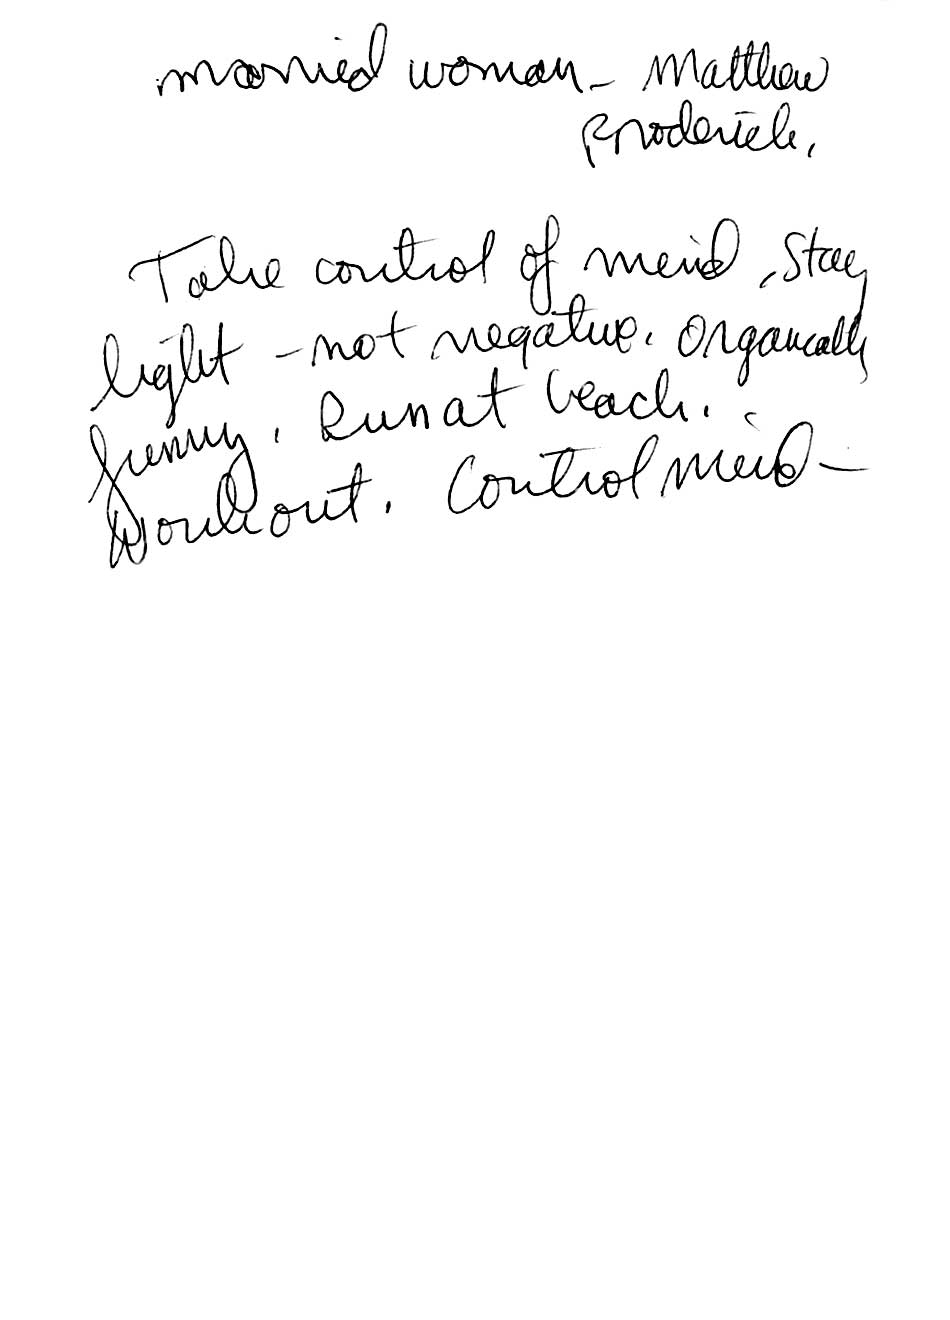 married woman - Matthew
Broderick,
Take control of mind, Stay
light - not negative. Organically
funny. Run at beach.
Workout. Control mind -